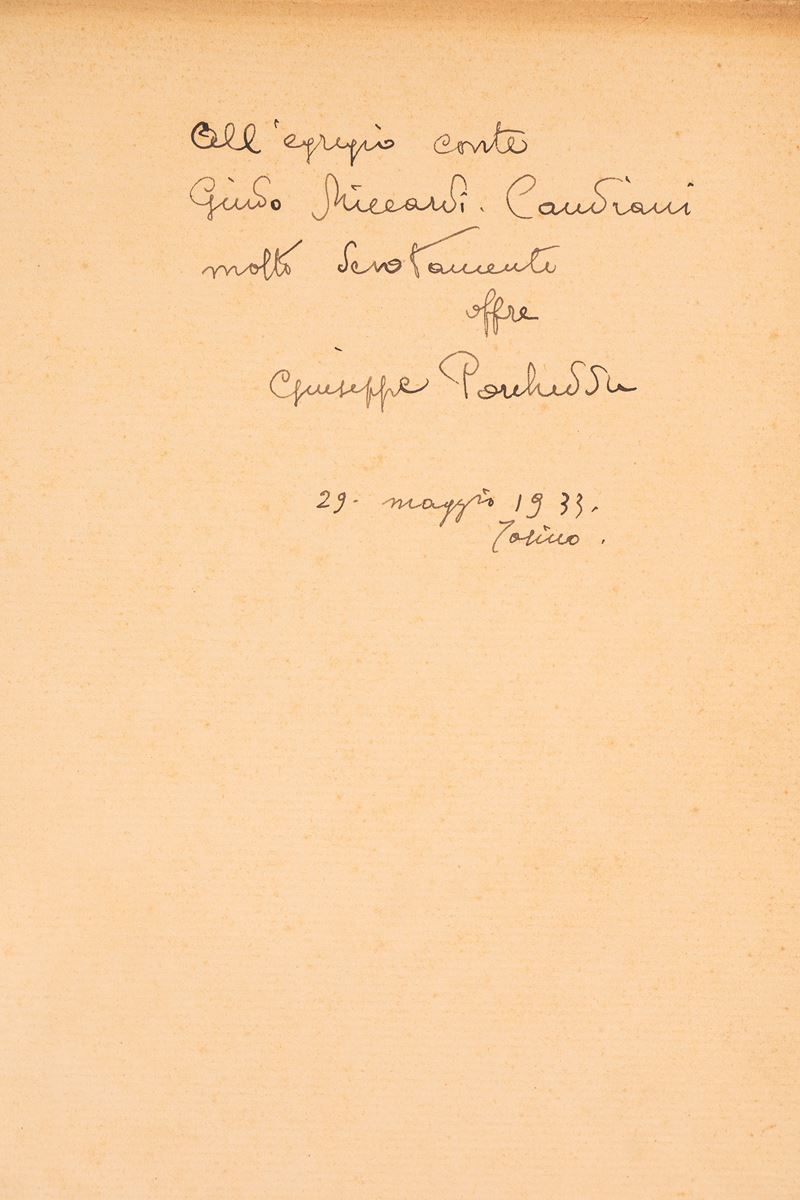 All'egregio conte
Guido Riccardi. Candiani
molto devotamente
offre
Giuseppe Porcheddu
29. maggio 1933.
Torino.